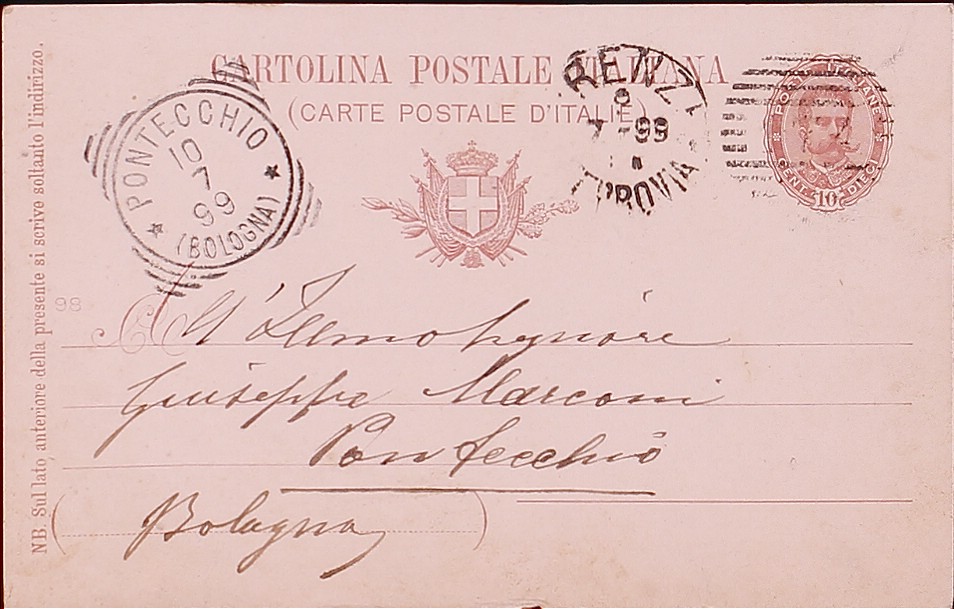 CARTOLINA POSTALE ITALIANA
(CARTE POSTALE D'ITALIE)
PONTECCHIO
10
7
99
(BOLOGNA)
RENZ
8
7 - 99
RROVIA
POSTE ITALIANE
CENT. 10 DIECI
98
All' Illmo Signore
Giuseppe Marconi
Pontecchio
(Bologna)
NB. Sul lato anteriore della presente si scrive soltanto l'indirizzo.